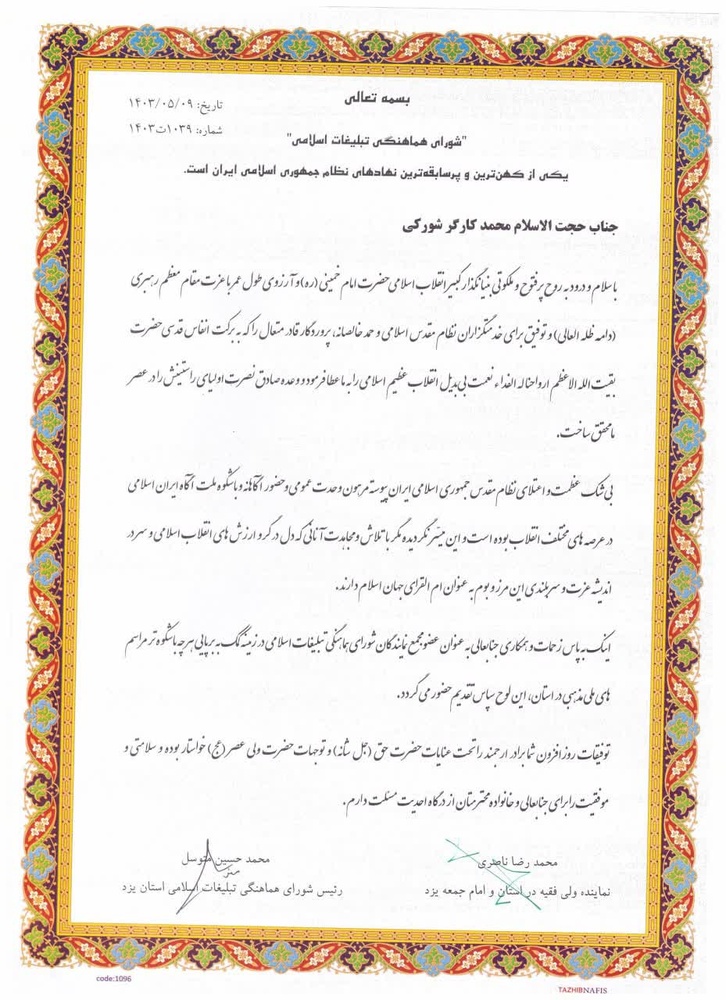 بسمه تعالی
تاریخ: ۱۴۰۳/۰۵/۰۹
شماره: ۱۰۳۹ت۱۴۰۳
"شورای هماهنگی تبلیغات اسلامی"
یکی از کهن‌ترین و پرسابقه‌ترین نهادهای نظام جمهوری اسلامی ایران است.
جناب حجت الاسلام محمد کارگر شورکی
باسلام و درود به روح پرفتوح و ملکوتی بنیانگذار کبیر انقلاب اسلامی حضرت امام خمینی (ره) و آرزوی طول عمر باعزت مقام معظم رهبری
(دامه ظله العالی) و توفیق برای خدمتگزاران نظام مقدس اسلامی و حمد خالصانه، پروردگار قادر متعال را که به برکت انفاس قدسی حضرت
بقیت الله الاعظم ارواحناله الفداء نعمت بی بدیل انقلاب عظیم اسلامی را به ما عطا فرمود و وعده صادق نصرت اولیای راستینش را در عصر
ما محقق ساخت.
بی شک عظمت و اعتلای نظام مقدس جمهوری اسلامی ایران پیوسته مرهون وحدت عمومی و حضور آگاهانه و باشکوه ملت آگاه ایران اسلامی
در عرصه های مختلف انقلاب بوده است و این میسر نگردیده مگر با تلاش و مجاهدت آنانی که دل در گرو ارزش های انقلاب اسلامی و سر در
اندیشه عزت و سربلندی این مرز و بوم به عنوان ام القرای جهان اسلام دارند.
اینک به پاس زحمات و همکاری جنابعالی به عنوان عضو مجمع نمایندگان شورای هماهنگی تبلیغات اسلامی در زمینه کمک به برپایی هرچه باشکوه تر مراسم
های ملی مذهبی در استان، این لوح سپاس تقدیم حضور می گردد.
توفیقات روزافزون شما برادر ارجمند را تحت عنایات حضرت حق (جل شأنه) و توجهات حضرت ولی عصر (عج) خواستار بوده و سلامتی و
موفقیت را برای جنابعالی و خانواده محترمتان از درگاه احدیت مسئلت دارم.
محمد رضا ناصری
نماینده ولی فقیه در استان و امام جمعه یزد
محمد حسین متوسل
رئیس شورای هماهنگی تبلیغات اسلامی استان یزد
code:1096
TAZHIBNAFIS